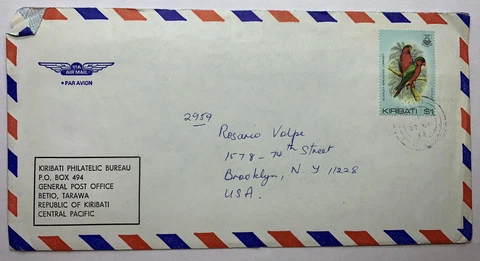 VIA
AIR MAIL
PAR AVION
KIRIBATI $1
2959
Rosario Volpe
1578 - 74th Street
Brooklyn, N Y 11228
U.S.A.
KIRIBATI PHILATELIC BUREAU
P.O. BOX 494
GENERAL POST OFFICE
BETIO, TARAWA
REPUBLIC OF KIRIBATI
CENTRAL PACIFIC